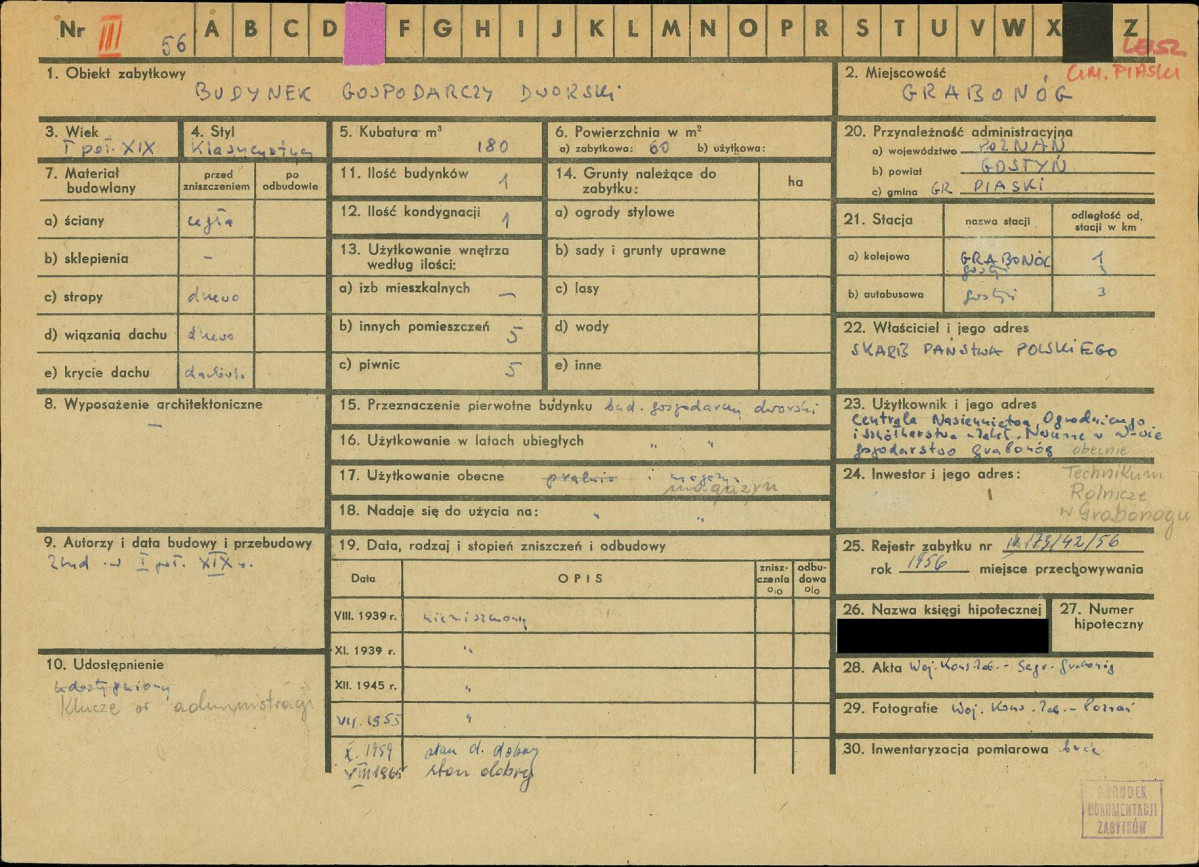 Nr III 56 A B C D F G H I J K L M N O P R S T U V W X Z
LESZ
GM. PIASKI
1. Obiekt zabytkowy
BUDYNEK GOSPODARCZY DWORSKI
2. Miejscowość
GRABONÓG
3. Wiek
I poł. XIX
4. Styl
Klasycystyczny
5. Kubatura m³
180
6. Powierzchnia w m²
a) zabytkowa: 60 b) użytkowa:
7. Materiał budowlany
przed zniszczeniem
po odbudowie
a) ściany cegła
b) sklepienia –
c) stropy drewo
d) wiązania dachu drewo
e) krycie dachu
8. Wyposażenie architektoniczne
–
9. Autorzy i data budowy i przebudowy
Zbud. w I poł. XIX w.
10. Udostępnienie
udostępniony
Klucze w administracji
11. Ilość budynków 1
12. Ilość kondygnacji 1
13. Użytkowanie wnętrza według ilości:
a) izb mieszkalnych –
b) innych pomieszczeń 5
c) piwnic 5
14. Grunty należące do zabytku:
ha
a) ogrody stylowe
b) sady i grunty uprawne
c) lasy
d) wody
e) inne
15. Przeznaczenie pierwotne budynku bud. gospodarczy dworski
16. Użytkowanie w latach ubiegłych " "
17. Użytkowanie obecne pralnia i magazyn
magazyn
18. Nadaje się do użycia na: " "
19. Data, rodzaj i stopień zniszczeń i odbudowy
Data
OPIS
znisz-czenia %
odbu-dowa %
VIII. 1939 r. niezniszczony
XI. 1939 r. "
XII. 1945 r. "
VII. 1955 "
X. 1959 stan d. dobry
VIII 1965 stan dobry
20. Przynależność administracyjna
a) województwo POZNAŃ
b) powiat GOSTYŃ
c) gmina GR PIASKI
21. Stacja
nazwa stacji
odległość od. stacji w km
a) kolejowa GRABONÓG 1
Gostyń 3
b) autobusowa Gostyń 3
22. Właściciel i jego adres
SKARB PAŃSTWA POLSKIEGO
23. Użytkownik i jego adres
Centrala Nasiennictwa, Ogrodniczego
i Szkółkarstwa
gospodarstwo Grabonóg obecnie
24. Inwestor i jego adres:
Technikum
Rolnicze
w Grabonogu
25. Rejestr zabytku nr 173/42/56
rok 1956 miejsce przechowywania
26. Nazwa księgi hipotecznej
27. Numer hipoteczny
28. Akta Woj. Kons. Zab. – Segr. Grabonóg
29. Fotografie Woj. Kons. Zab. – Poznań
30. Inwentaryzacja pomiarowa brak
OŚRODEK
DOKUMENTACJI
ZABYTKÓW